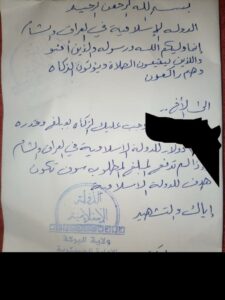 بسم الله الرحمن الرحيم
الدولة الإسلامية في العراق والشام
إنما وليكم الله ورسوله والذين آمنو
والذين يقيمون الصلاة ويؤتون الزكاه
وهم راكعون
إلى الأخ..
عليك الزكاه بمبلغ وقدره
دولار للدولة الإسلامية في العراق والشام
تدفع المبلغ المطلوب سوف تكون
هدف للدولة الاسلامية
إياك والتشهير
الدولة
الإسلامية
ولاية البركة